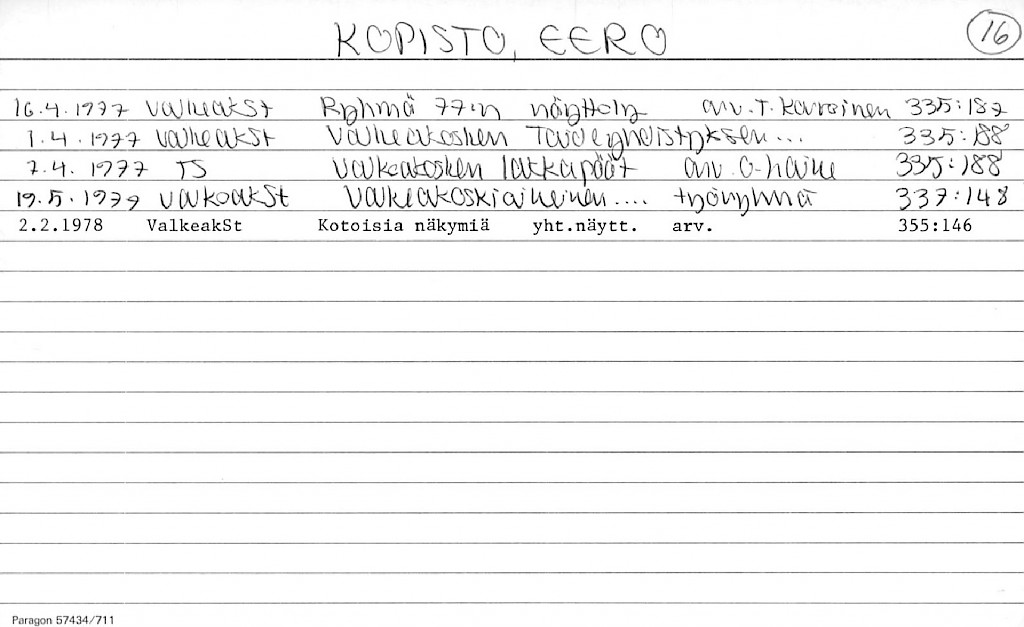 KOPISTO, EERO 16
16.4.1977 ValkeakSt Ryhmä 77:n näyttely arv. T. Karvinen 335:187
1.4.1977 ValkeakSt Valkeakosken Taideyhdistyksen... 335:188
7.4.1977 TS Valkeakosken latkapäät arv. O-haine 335:188
19.5.1977 ValkeakSt Valkeakoskiaiheinen.... työryhmä 337:148
2.2.1978 ValkeakSt Kotoisia näkymiä yht.näytt. arv. 355:146
Paragon 57434/711